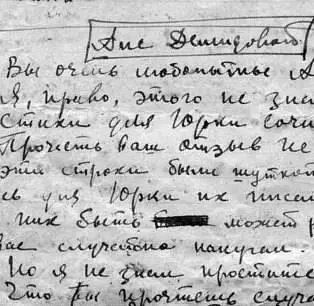 Ане Демидовой
Вы очень любопытные А
я, право, этого не знал
Стихи для Юрки сочи
Прочесть Ваш отзыв не
эти строки были шутко
сь для Юрки их писал
них быть может
Вас случайно напугал.
Но я не знал простите
Что Вы прочтёшь случа